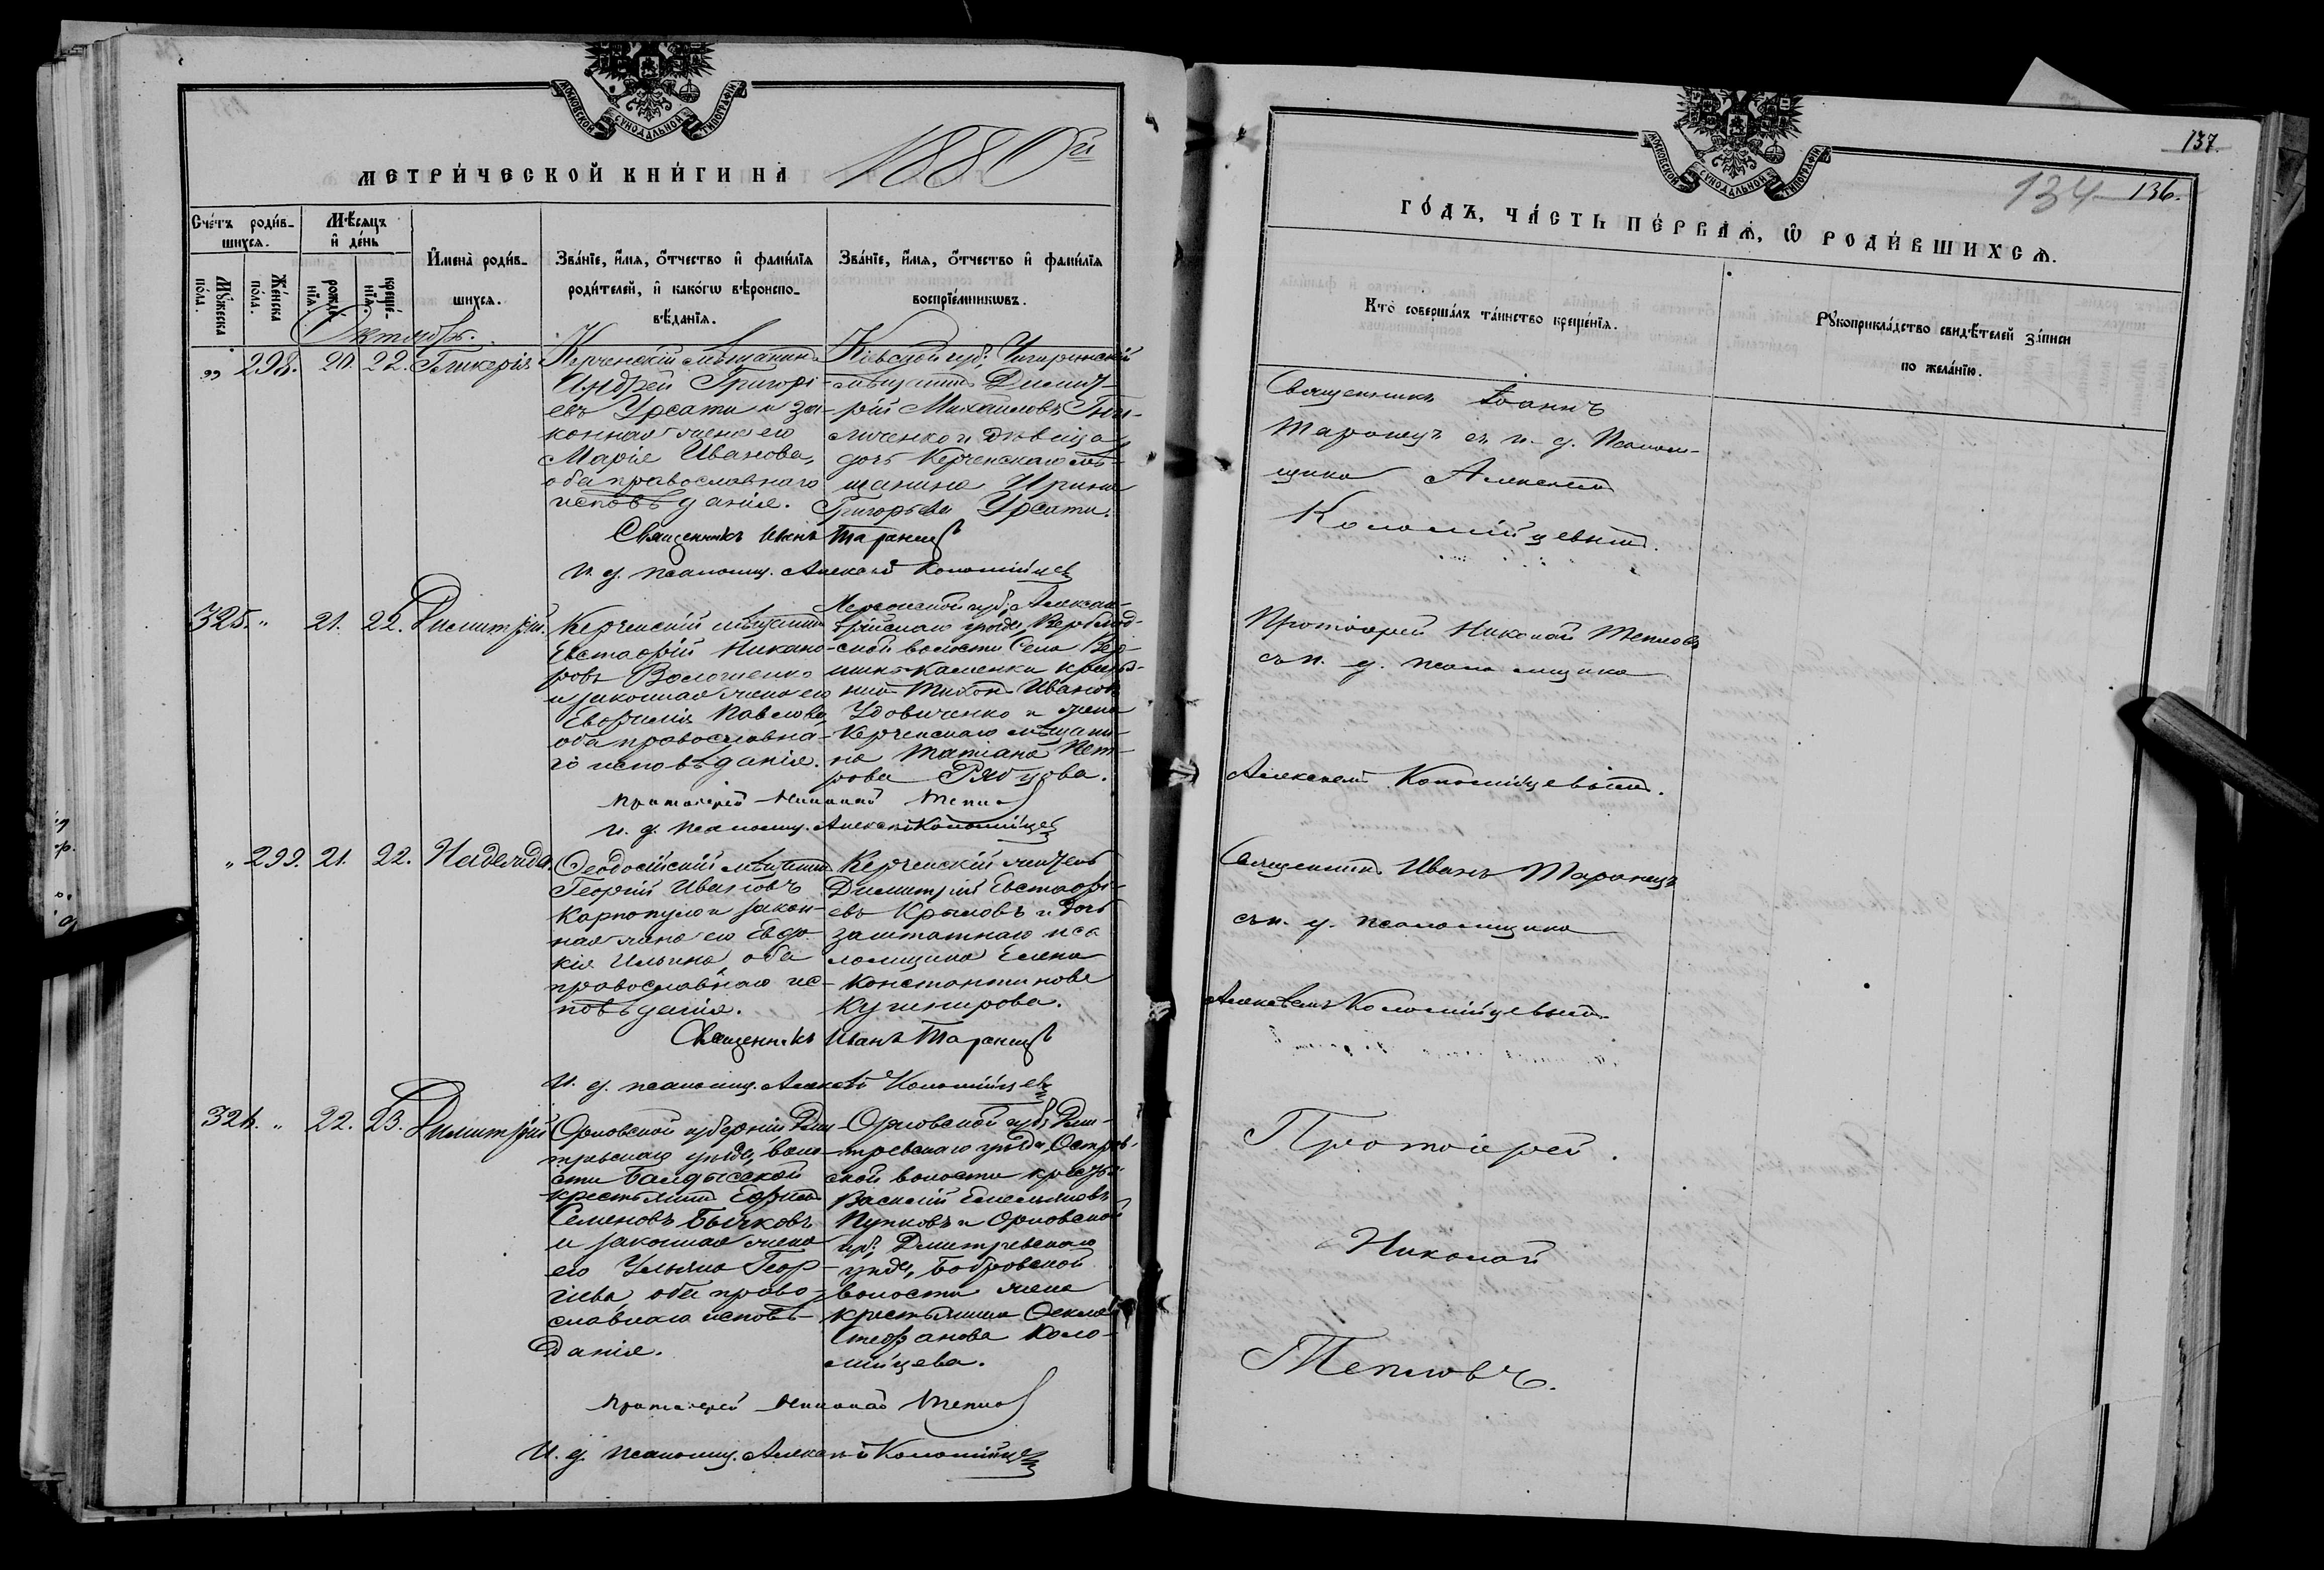 МОСКОВСКОЙ СѴНОДАЛЬНОЙ ТИПОГРАФІИ
МЕТРИ́ЧЕСКОЙ КНИ́ГИ НА 1880й
Сче́тъ роди́в-
шихся.
Мѣ́сяцъ
и҆ де́нь
Мꙋ́жеска
по́ла.
Же́нска
по́ла.
рожде́-
нїѧ.
креще́-
нїѧ.
И҆мена̀ роди́в-
шихся.
Зва́нїе, и҆́мя, ѻ҆́тчество и҆ фами́лїя
роди́телей, и҆ како́гѡ вѣроиспо-
вѣ́данїя.
Зва́нїе, и҆́мя, ѻ҆́тчество и҆ фами́лїя
воспрїе́мникѡвъ.
Октябрь.
„ 298. 20. 22. Гликерія
Керченскій мѣщанинъ
Андрей Григорі-
евъ Урсати и за-
конная жена его
Марія Иванова,
оба православнаго
исповѣданія.
Кіевской губ; Чигиринскій
мѣщанинъ Димит-
рій Михайловъ
и дѣвица
дочь Керченскаго мѣ-
щанина Ирина
Григорьева Урсати.
Священникъ Иванъ Таранецъ
И. д. псаломщ. Алексѣй Коломійцевъ
325. „ 21. 22. Димитрій.
Керченскій мѣщанинъ
Евстафій Никано-
ровъ Волошенко
и законная жена его
Евфимія Павлова,
оба православна-
го исповѣданія.
Херсонской губ; Алексан-
дрійскаго уѣзда,
волости Села Вер-
Каменки крестья-
нинъ Тихонъ Ивановъ
Удовиченко и жена
Керченскаго мѣщани-
на Татіана Пет-
рова Рябцова.
Протоіерей Николай Тепловъ
И. д. псаломщ. Алексѣй Коломійцевъ
„ 299. 21. 22. Надежда
Ѳеодосійскій мѣщанинъ
Георгій Ивановъ
Карпопуло и закон-
ная жена его Евдо-
кія Ильина, оба
православнаго ис-
повѣданія.
Керченскій житель
Димитрій Евстафі-
евъ Крымовъ и дочь
заштатнаго пса-
ломщика Елена
Константинова
Кушнирова.
Священникъ Иванъ Таранецъ
И. д. псаломщ. Алексѣй Коломійцевъ
326. „ 22. 23. Димитрій
Орловской губерніи Дми-
тріевскаго уѣзда, воло-
сти
крестьянинъ Ефимъ
Семеновъ Бычковъ
и законная жена
его Ульяна Геор-
гіева оба право-
славнаго исповѣ-
данія.
Орловской губ; Дми-
тревскаго уѣзда,
ской волости крестья
Василій Емельяновъ
Пупковъ и Орловской
губ; Дмитревскаго
уѣзда, Бобровской
волости жена
крестьянина Ѳекла
Стефанова Коло-
мійцева.
Протоіерей Николай Тепловъ
И. д. псаломщ. Алексѣй Коломійцевъ
МОСКОВСКОЙ СѴНОДАЛЬНОЙ ТИПОГРАФІИ
137.
134 136.
ГО́ДЪ, ЧА́СТЬ ПЕ́РВАѦ, Ѡ҆ РОДИ́ВШИХСѦ.
Кто̀ соверша́лъ та́инство креще́нїя.
Рꙋкоприкла́дство свидѣ́телей за́писи
по жела́нїю.
Священникъ Іоаннъ
Таранецъ съ и. д. Псалом-
щика Алексѣемъ
Коломійцевымъ.
Протоіерей Николай Тепловъ
съ и. д. псаломщика
Алексѣемъ Коломійцевымъ.
Священникъ Иванъ Таранецъ
съ и. д. псаломщика
Алексѣемъ Коломійцевымъ.
Протоіерей
Николай
Тепловъ.